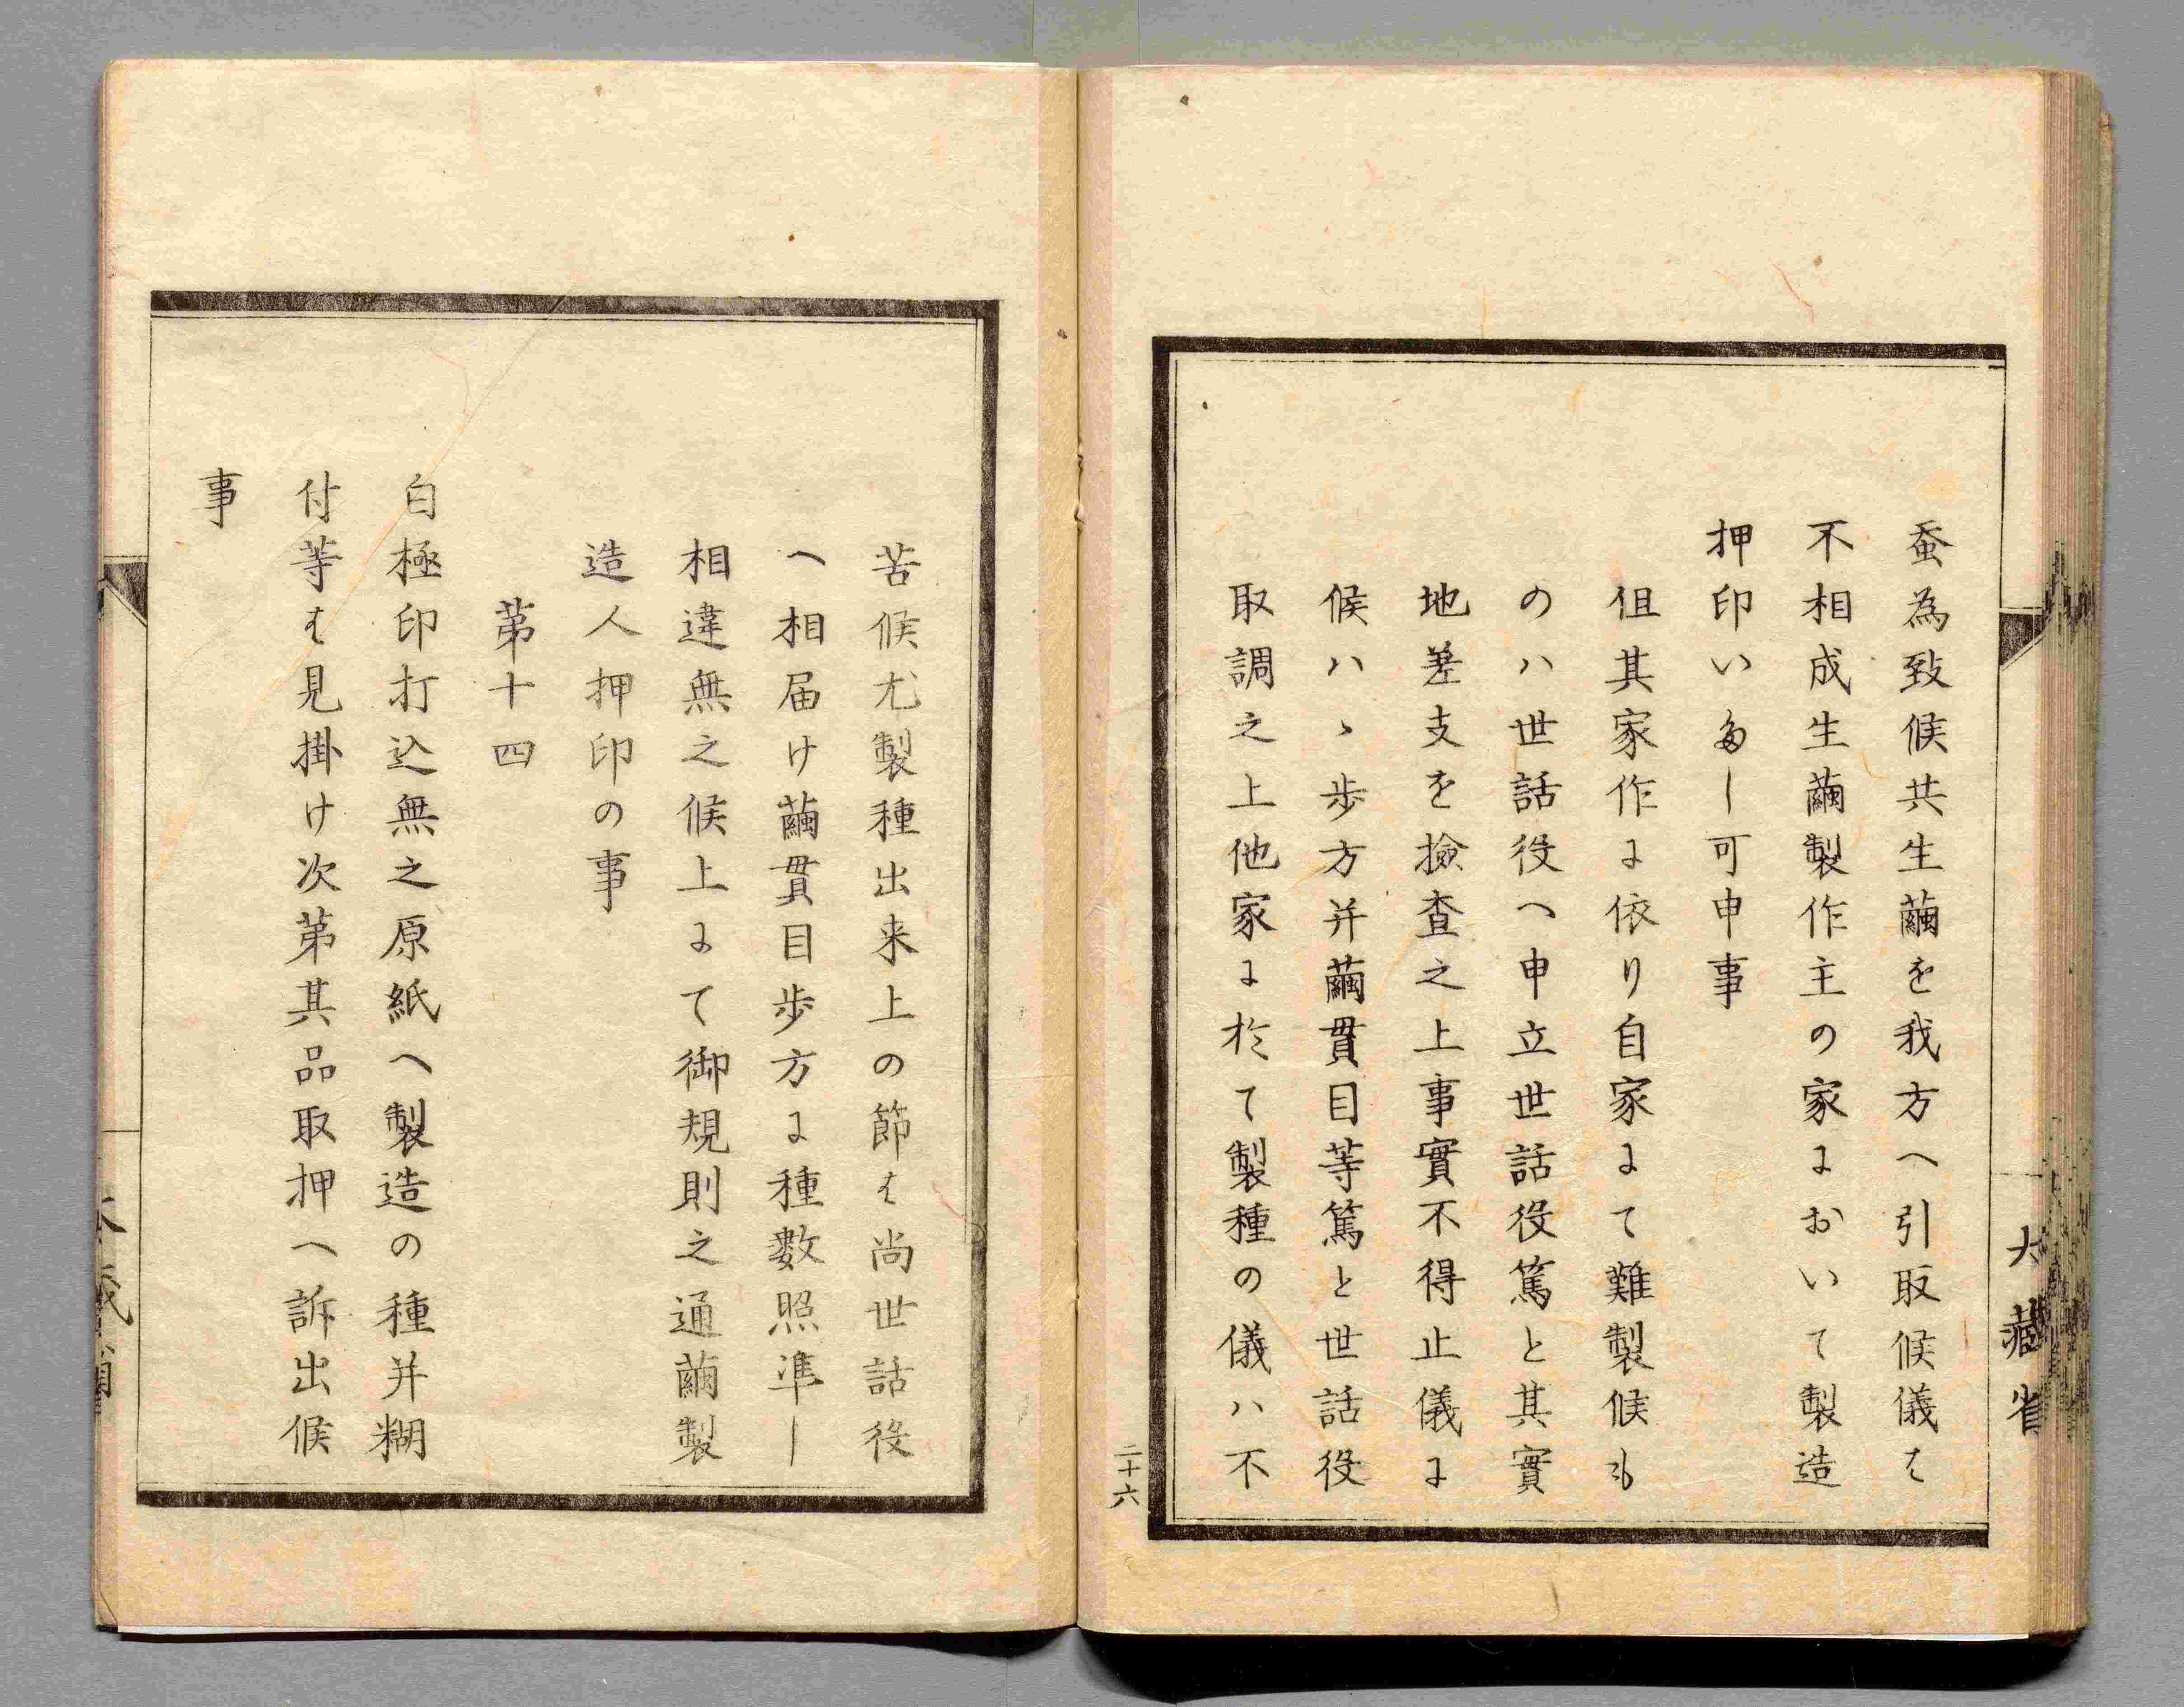 蚕為致候共生繭を我方へ引取候儀は
不相成生繭製作主の家において製造
押印いたし可申事
但其家作に依り自家にて難製候も
のハ世話役へ申立世話役篤と其實
地差支を撿査之上事實不得止儀に
候ハヽ歩方并繭貫目等篤と世話役
取調之上他家に於て製種の儀ハ不
大藏省
二十六
苦候尤製種出来上の節は尚世話役
へ相届け繭貫目歩方に種數照準し
相違無之候上にて御規則之通繭製
造人押印の事
第十四
白極印打込無之原紙へ製造の種并糊
付等は見掛け次第其品取押へ訴出候
事